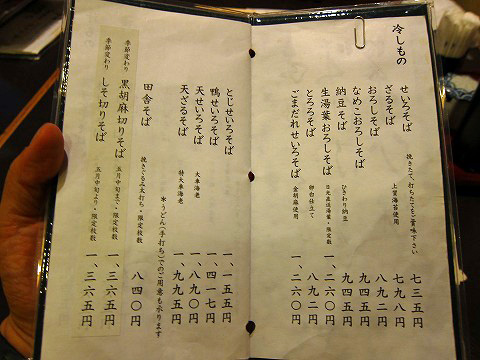 冷しもの
せいろそば 挽きたて、打ちたてをご賞味下さい 七三五円
ざるそば 上質海苔使用 七九八円
おろしそば 八九二円
なめこおろしそば 九四五円
納豆そば ひきわり納豆 九四五円
生湯葉おろしそば 日光産湯葉・限定数 一、二六〇円
とろろそば 卵白仕立て 八九二円
ごまだれせいろそば 金胡麻使用 一、二六〇円
とじせいろそば 一、一五五円
鴨せいろそば 一、四一七円
天せいろそば 大車海老 一、八九〇円
天ざるそば 特大車海老 一、九九五円
＊うどん(手打ち)でのご用意も承ります
田舎そば 挽きぐるみ太打ち・限定枚数 八四〇円
季節変わり 黒胡麻切りそば 五月中旬まで・限定枚数 一、三六五円
季節変わり しそ切りそば 五月中旬より・限定枚数 一、三六五円